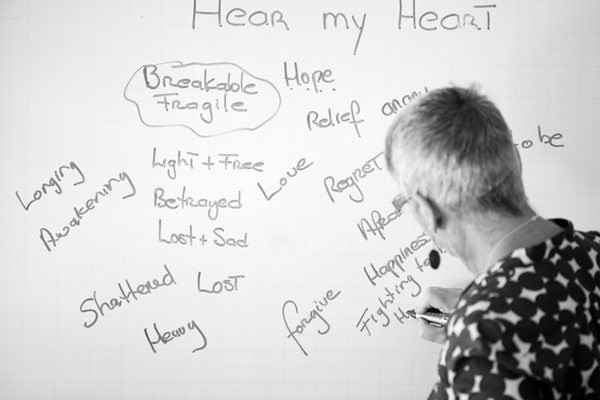 Hear my Heart
Breakable
Fragile
Hope
Relief angry
to be
Light + Free
Love
Regret
Longing
Awakening
Betrayed
Lost + Sad
Happiness
Shattered
Lost
Fighting to
forgive
Heavy